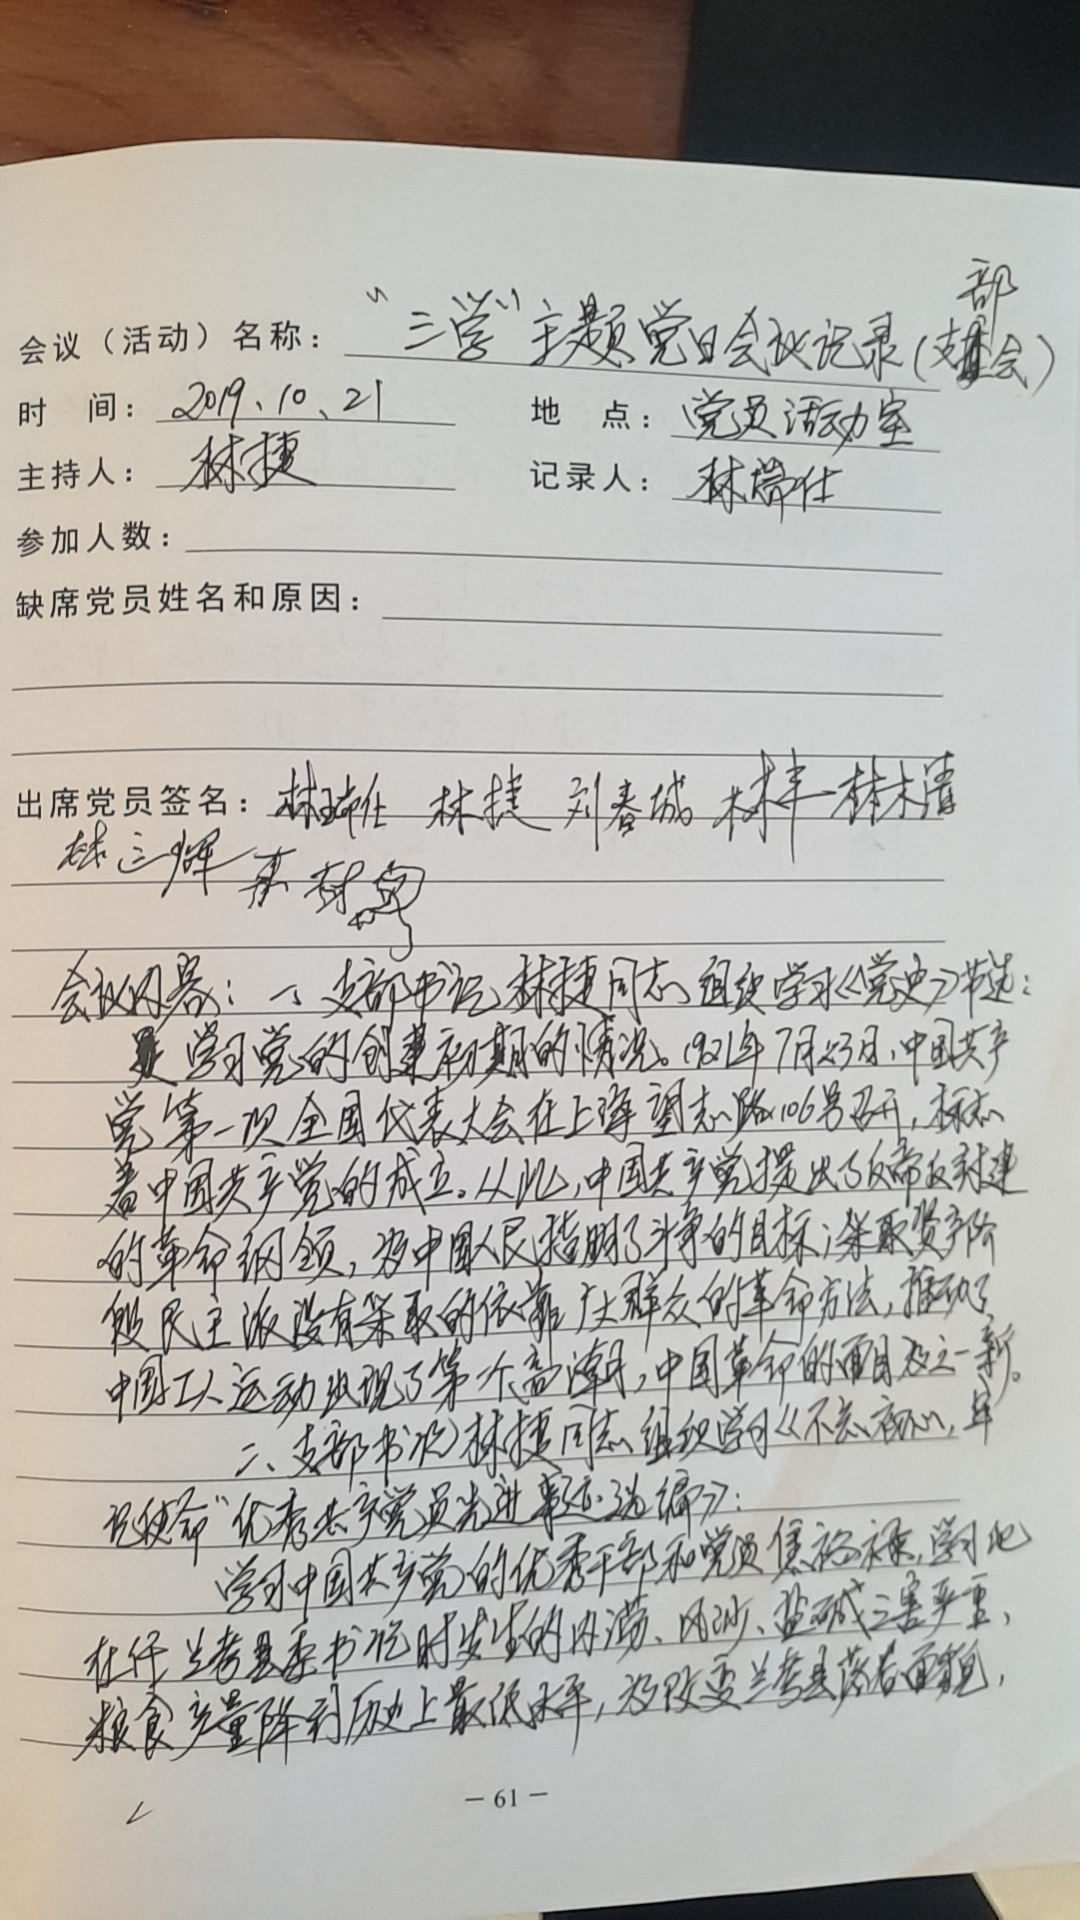 会议（活动）名称：“三学”主题党日会议记录(支部会)
时 间：2019、10、21 地 点：党员活动室
主持人：林捷 记录人：林瑞仕
参加人数：
缺席党员姓名和原因：
出席党员签名：林瑞仕 林捷 刘春城 林丰 林木清
会议内容：一、支部书记林捷同志组织学习《党史》节选：
学习党的创建初期的情况。1921年7月23日，中国共产
党第一次全国代表大会在上海望志路106号召开，标志
着中国共产党的成立。从此，中国共产党提出了反帝反封建
的革命纲领，为中国人民指明了斗争的目标；采取资产阶
级民主派没有采取的依靠广大群众的革命方法，推动了
中国工人运动出现了第一个高潮，中国革命的面目为之一新。
二、支部书记林捷同志组织学习《不忘初心，牢
记使命”优秀共产党员先进事迹选编》：
学习中国共产党的优秀干部和党员焦裕禄，学习他
在任兰考县委书记时发生的内涝、风沙、盐碱三害严重、
粮食产量降到历史上最低水平，为改变兰考县落后面貌，
— 61 —